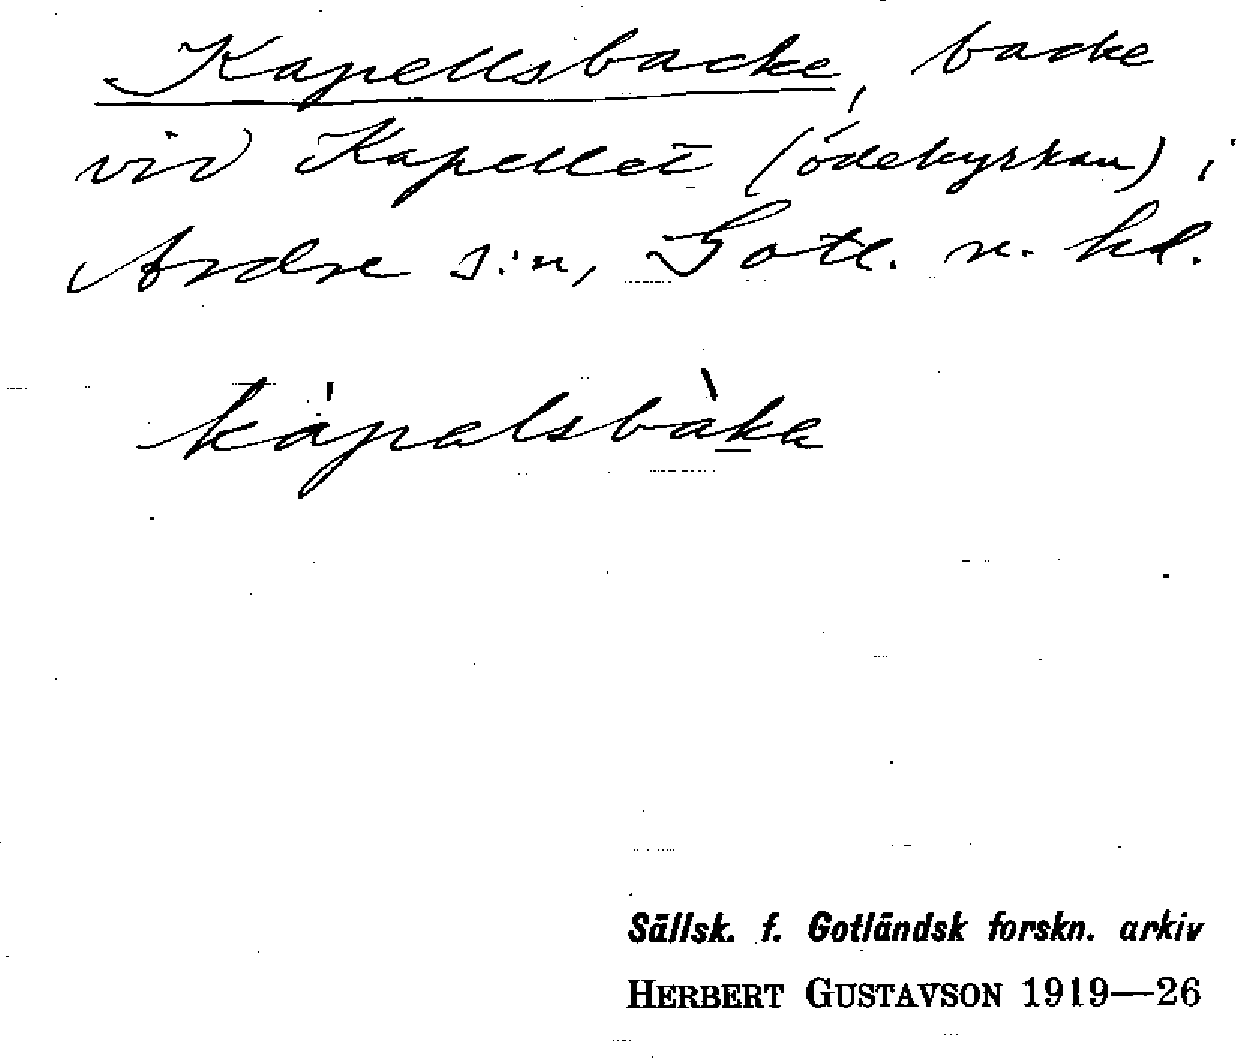 Kapellsbacke, backe
vid Kapellet (ödekyrkan) i
Ardre s:n, Gotl. n. hd.
kápalsbàka
Sällsk. f. Gotländsk forskn. arkiv
HERBERT GUSTAVSON 1919—26